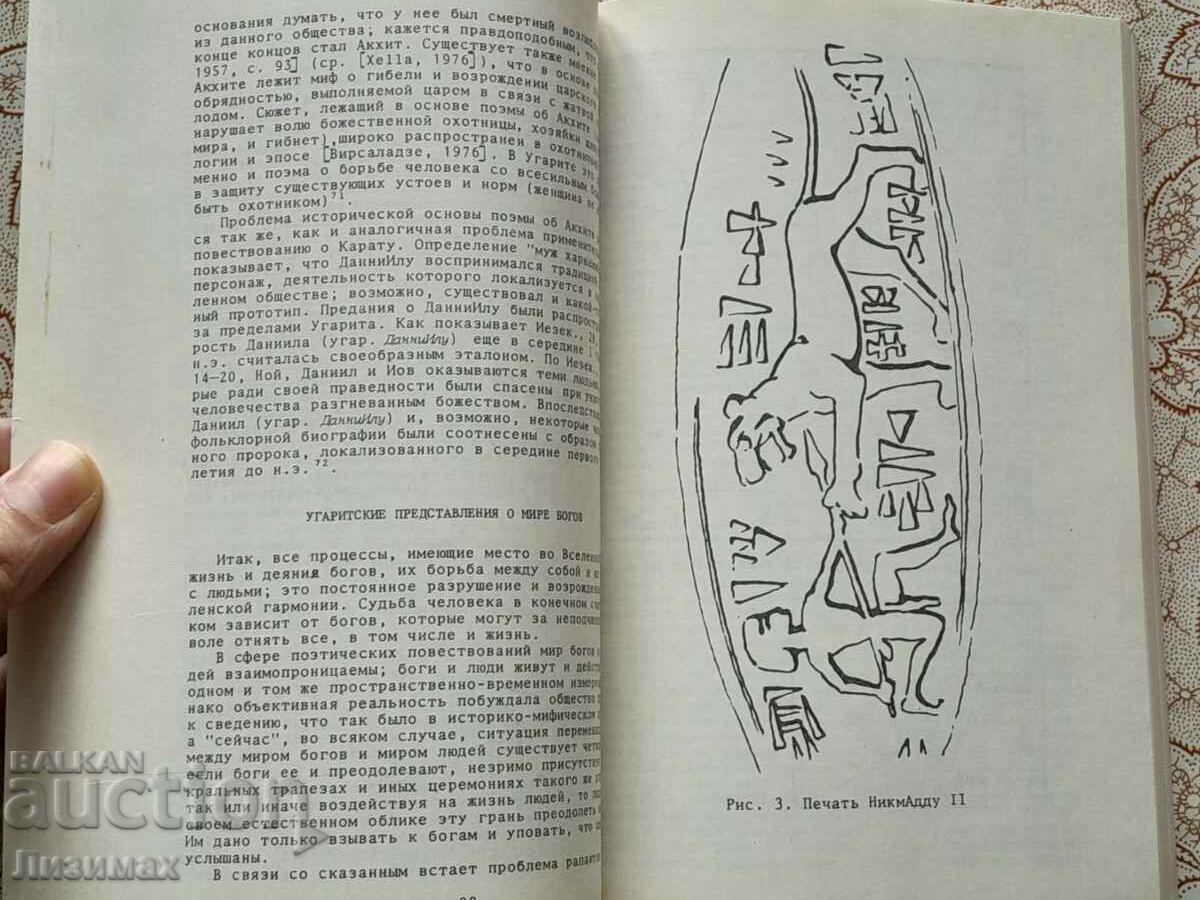 основания думать, что у нее был смертный
из данного общества; кажется правдоподобным, что
конце концов стал Акхит. Существует также мнение
1957, с. 93] (ср. [Xella, 1976]), что в основе
Акхите лежит миф о гибели и возрождении царского
обрядностью, выполняемой царем в связи с жатвой
лодом. Сюжет, лежащий в основе поэмы об Акхите
нарушает волю божественной охотницы, хозяйки
мира, и гибнет), широко распространен в
логии и эпосе [Вирсаладзе, 1976]. В Угарите это
менно и поэма о борьбе человека со всесильным
в защиту существующих устоев и норм (женщина не
быть охотником)71.
Проблема исторической основы поэмы об Акхите
ся так же, как и аналогичная проблема
повествованию о Карату. Определение "муж
показывает, что ДанниИлу воспринимался
персонаж, деятельность которого локализуется в
ленном обществе; возможно, существовал и
ный прототип. Предания о ДанниИлу были
за пределами Угарита. Как показывает Иезек.,
рость Даниила (угар. ДанниИлу) еще в середине
н.э. считалась своеобразным эталоном. По Иезек.
14—20, Ной, Даниил и Иов оказываются теми
рые ради своей праведности были спасены при
человечества разгневанным божеством.
Даниил (угар. ДанниИлу) и, возможно, некоторые
фольклорной биографии были соотнесены с образом
ного пророка, локализованного в середине первого
летия до н.э.72.
УГАРИТСКИЕ ПРЕДСТАВЛЕНИЯ О МИРЕ БОГОВ
Итак, все процессы, имеющие место во
жизнь и деяния богов, их борьба между собой и
с людьми; это постоянное разрушение и
ленской гармонии. Судьба человека в конечном
ком зависит от богов, которые могут за
воле отнять все, в том числе и жизнь.
В сфере поэтических повествований мир богов
дей взаимопроницаемы; боги и люди живут и
одном и том же пространственно-временном
нако объективная реальность побуждала общество
к сведению, что так было в историко-мифическом
а "сейчас", во всяком случае, ситуация
между миром богов и миром людей существует
если боги ее и преодолевают, незримо
кральных трапезах и иных церемониях такого же
так или иначе воздействуя на жизнь людей, то
своем естественном облике эту грань преодолеть
Им дано только взывать к богам и уповать, что
услышаны.
В связи со сказанным встает проблема
Рис. 3. Печать НикмАдду II
BALKAN
auction
Лизимах